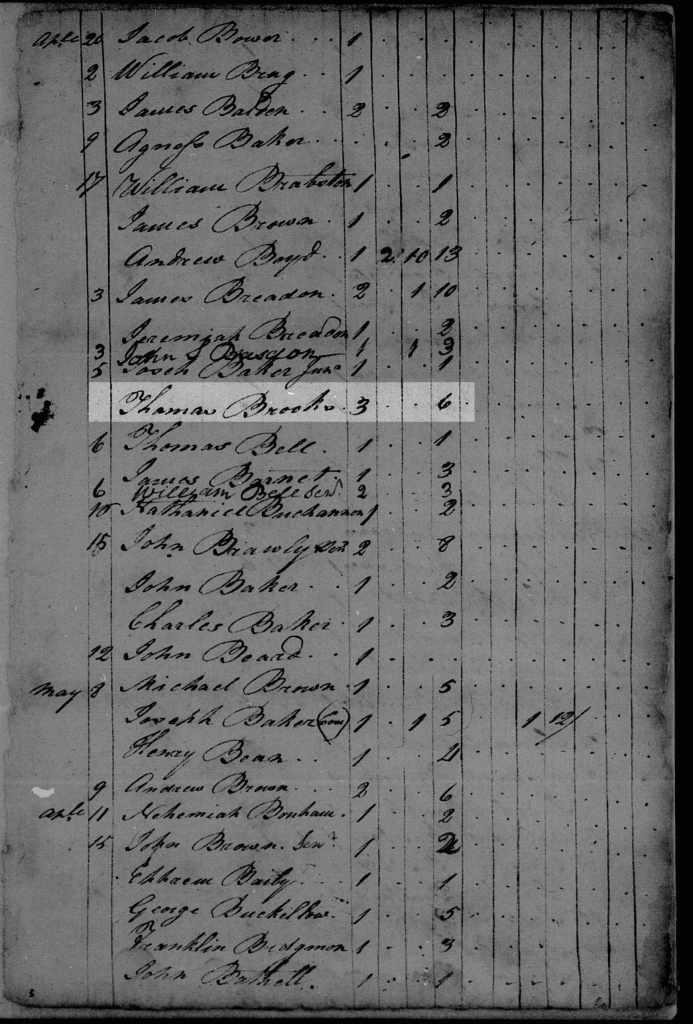 Aple 20 Jacob Bower 1
2 William Brag 1
3 James Balden 2 2
9 Agness Baker 2
17 William Brabston 1 1
James Brown 1 2
Andrew Boyd 1 2 10 13
3 James Breadon 2 1 10
Jeremiah Breadon 1 2
3 John 1 1 3
5 Joseph Baker Junr 1 1
Thomas Brooks 3 6
6 Thomas Bell 1 1
James Barnet 1 3
6 William Bell Senr 2 3
10 Nathaniel Buchannon 1 2
15 John Brawly Senr 2 8
John Baker 1 2
Charles Baker 1 3
12 John Beard 1
May 8 Michael Brown 1 5
Joseph Baker 1 1 5 1 12/
Henry Bean 1 4
9 Andrew Brown 2 6
Aple 11 Nehemiah Bonham 1 2
15 John Brown Senr 1 2
Ephraem Baity 1 1
George 1 5
Franklin Bridgmon 1 3
John 1 1